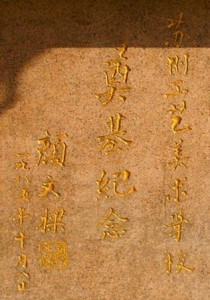 苏州工艺美术学校
奠基纪念
颜文樑
一九八五年十月八日